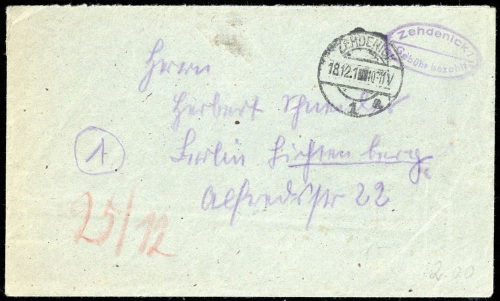 Zehdenick
Gebühr bezahlt
ZEHDENICK
18.12.1 10-11V
a
Herrn
Herbert
1
Berlin Lichtenberg
Alfredstr 22
25/12
2.00